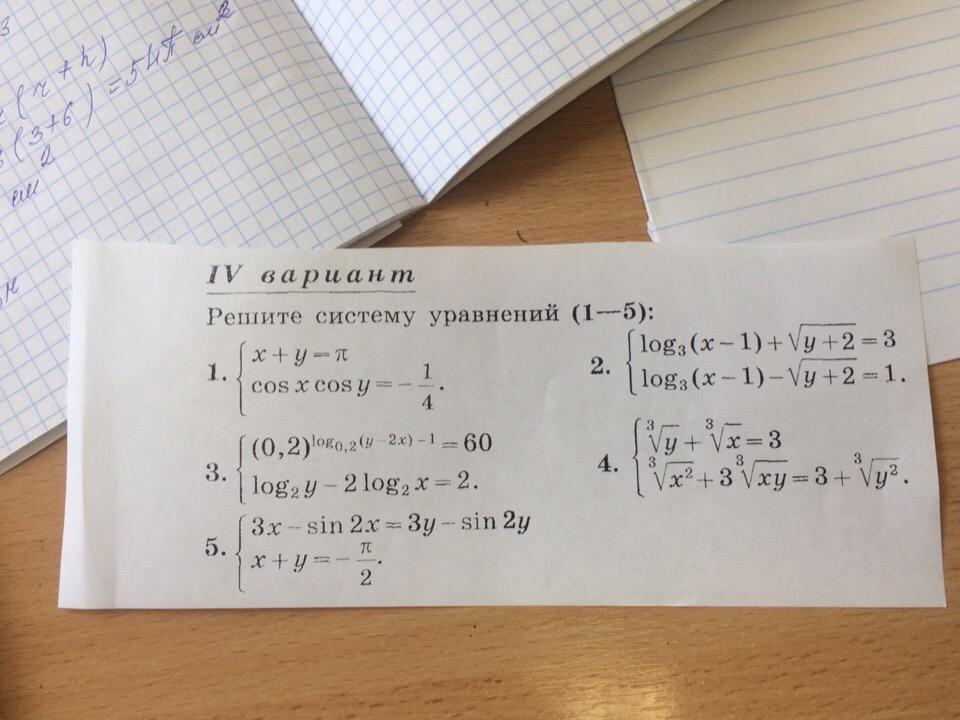 (r + h)
(3+6) = 54π см²
см²
IV вариант
Решите систему уравнений (1—5):
1. { x + y = π
cos x cos y = -1/4.
2. { log₃(x − 1) + √(y + 2) = 3
log₃(x − 1) − √(y + 2) = 1.
3. { (0,2)^(log₀,₂(y − 2x) − 1) = 60
log₂ y − 2 log₂ x = 2.
4. { ∛y + ∛x = 3
∛x² + 3∛xy = 3 + ∛y².
5. { 3x − sin 2x = 3y − sin 2y
x + y = −π/2.